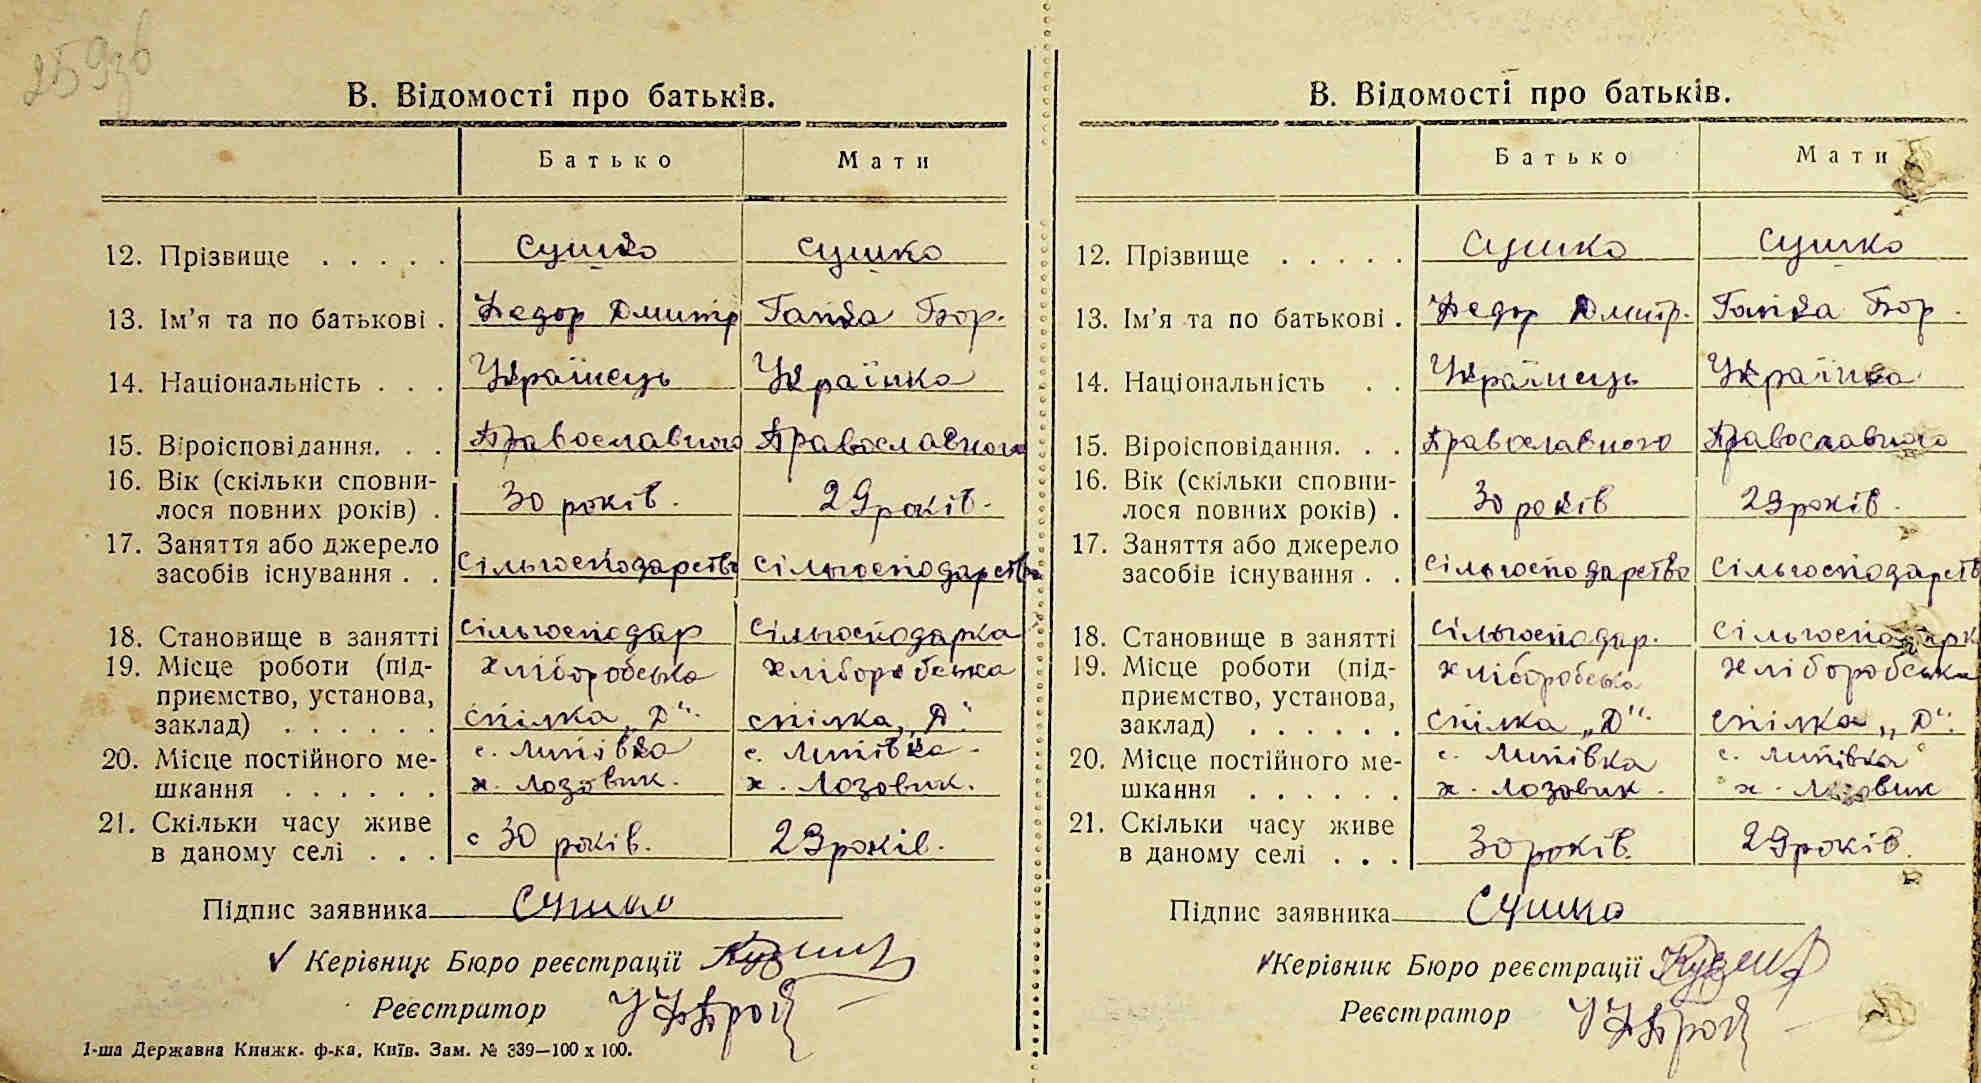 В. Відомості про батьків.
Батько Мати
12. Прізвище . . . . . Сушко Сушко
13. Ім'я та по батькові . Федор Дмитр Ганна
14. Національність . . . Українець Українка
15. Віроісповідання. . . Православного Православного
16. Вік (скільки сповни-
лося повних років) . 30 років. 29 років.
17. Заняття або джерело
засобів існування . . Сільгосподарство Сільгосподарство
18. Становище в занятті Сільгосподар Сільгосподарка
19. Місце роботи (під- хліборобська хліборобська
приємство, установа,
заклад) . . . . . . спілка „Д“. спілка „Д“.
20. Місце постійного ме- с. Липівка с. Липівка.
шкання . . . . . . х. Лозовик. х. Лозовик.
21. Скільки часу живе
в даному селі . . . с 30 років. 29 років.
Підпис заявника Сушко
Керівник Бюро реєстрації
Реєстратор
1-ша Державна Книжк. ф-ка, Київ. Зам. № 339—100 х 100.
В. Відомості про батьків.
Батько Мати
12. Прізвище . . . . . Сушко Сушко
13. Ім'я та по батькові . Федор Дмитр. Ганна
14. Національність . . Українець Українка
15. Віроісповідання. . . Православного Православного
16. Вік (скільки сповни-
лося повних років) . 30 років 29 років.
17. Заняття або джерело
засобів існування . . Сільгосподарство Сільгосподарств
18. Становище в занятті Сільгосподар. Сільгосподарк
19. Місце роботи (під- хліборобська хліборобська
приємство, установа,
заклад) . . . . . . спілка „Д“. спілка „Д“.
20. Місце постійного ме- с. Липівка с. Липівка
шкання . . . . . . х. Лозовик. х. Лозовик
21. Скільки часу живе
в даному селі . . . 30 років. 29 років.
Підпис заявника Сушко
Керівник Бюро реєстрації
Реєстратор